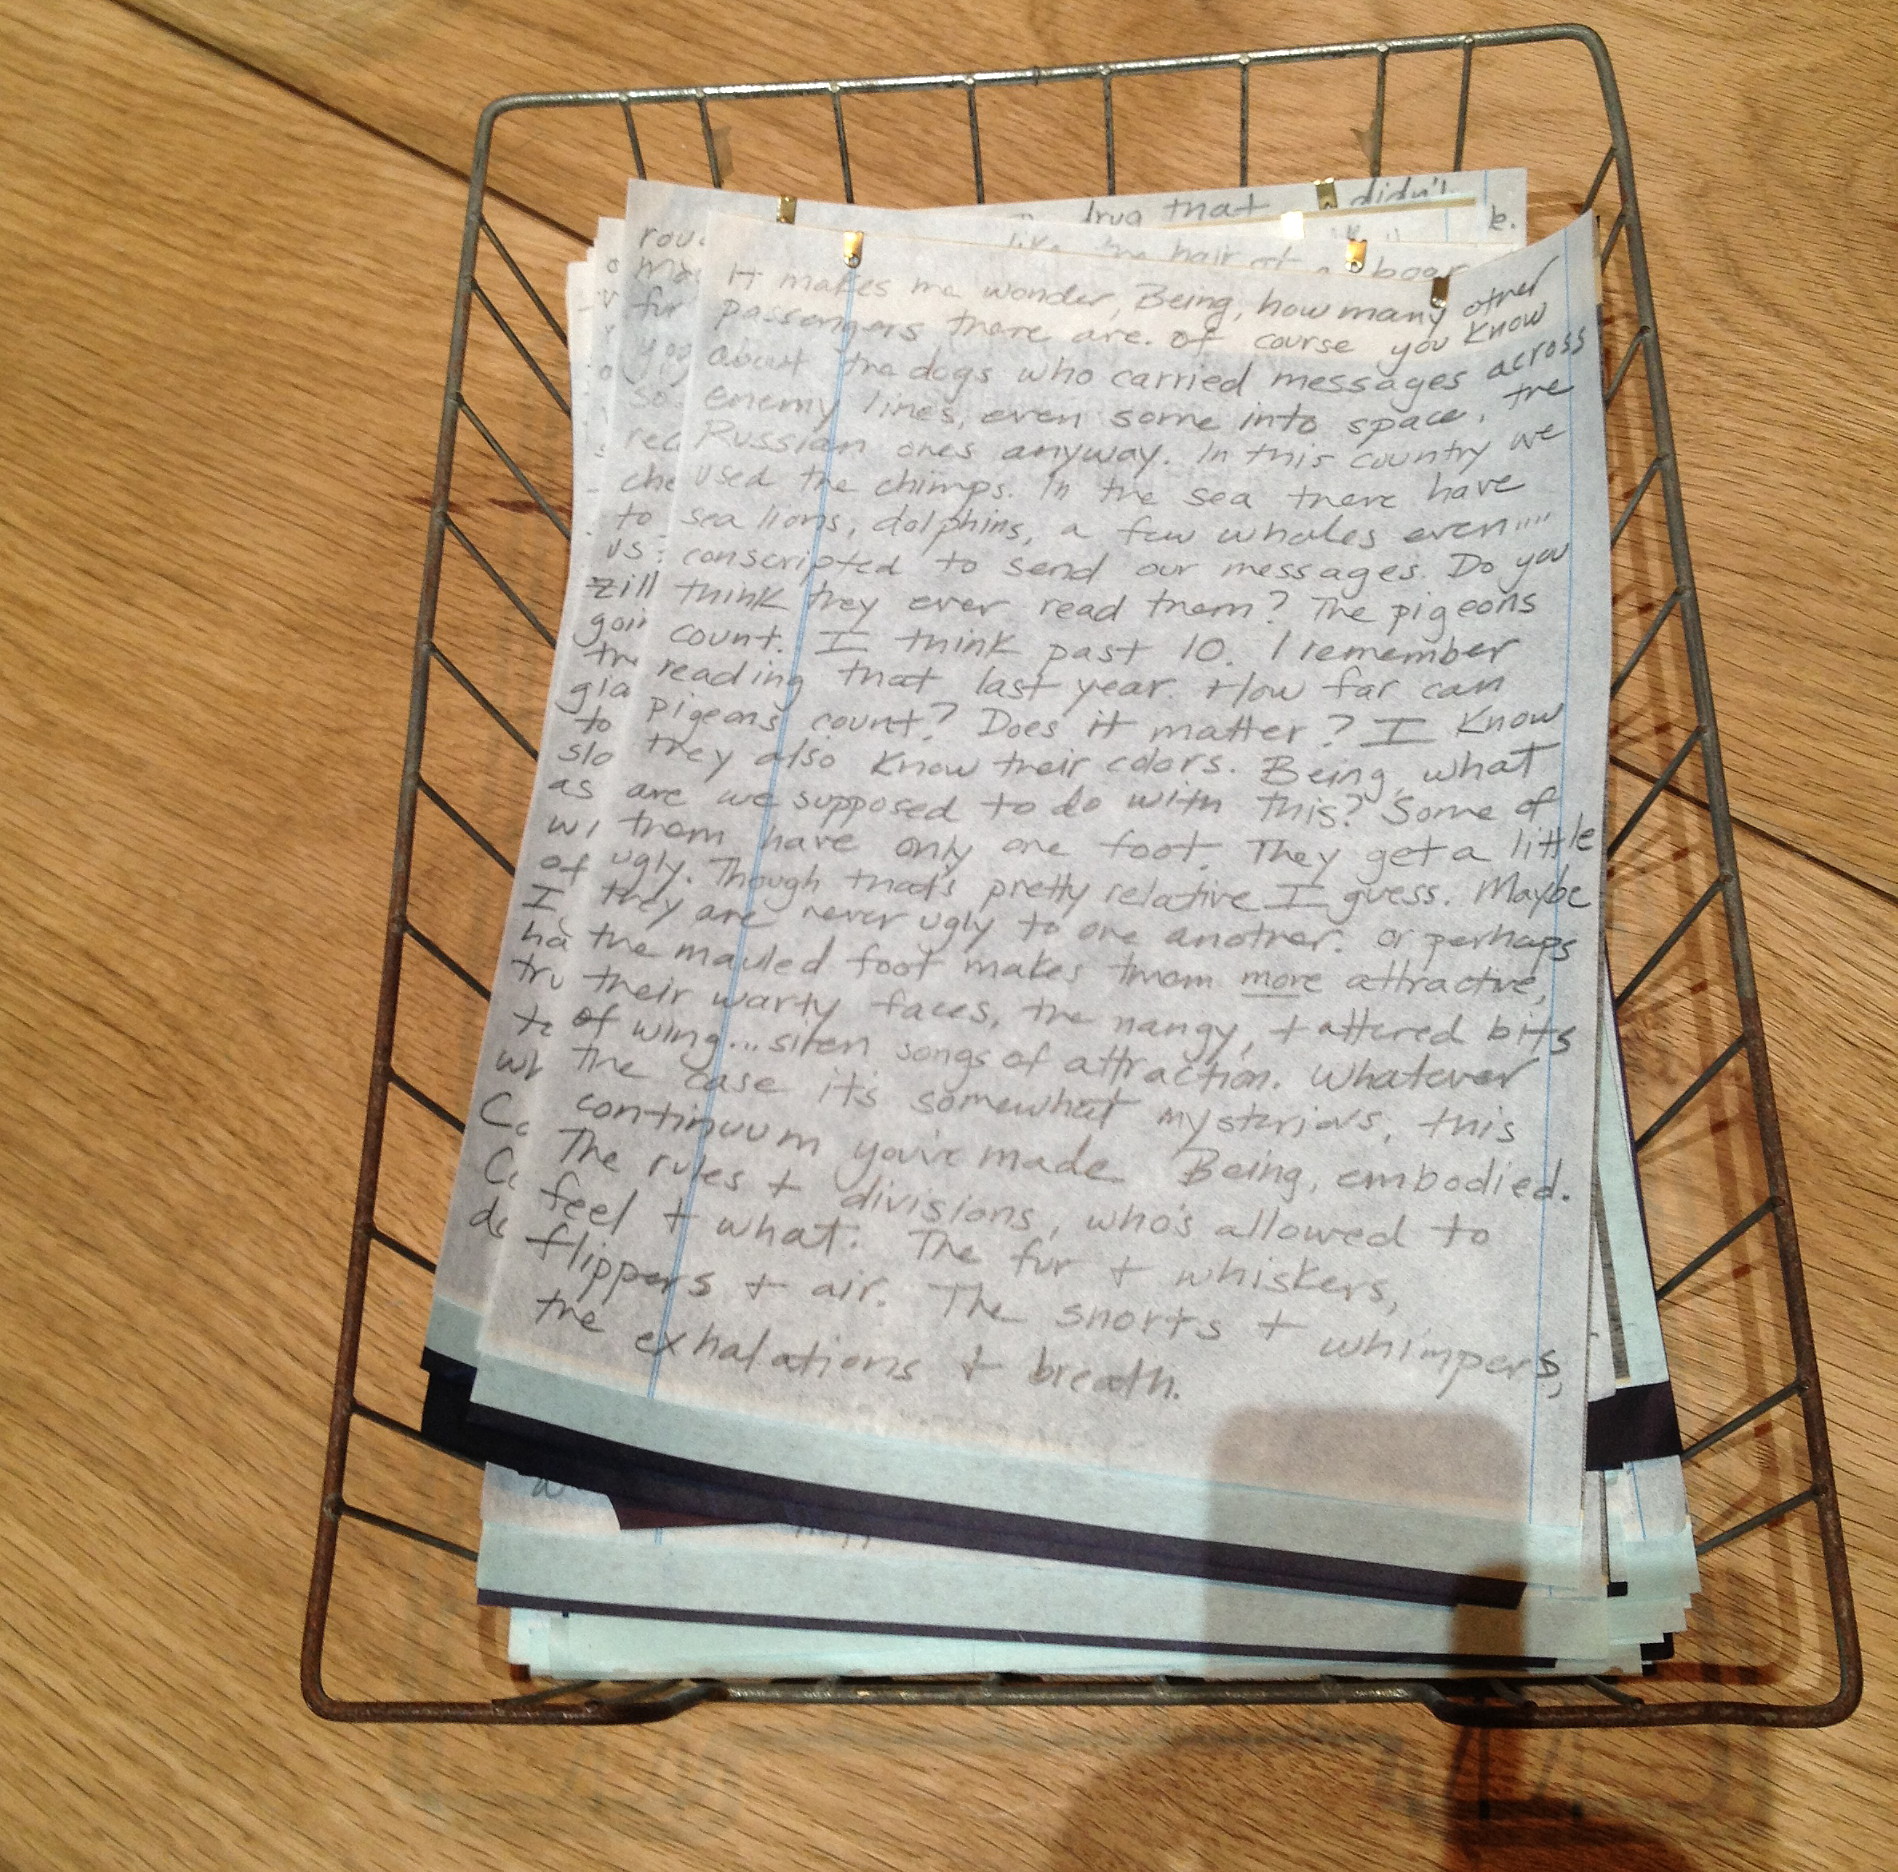 drug that didn't
like the hair of a boar
It makes me wonder, Being, how many other
passengers there are. Of course you know
about the dogs who carried messages across
enemy lines, even some into space, the
Russian ones anyway. In this country we
used the chimps. In the sea there have
sea lions, dolphins, a few whales even""
conscripted to send our messages. Do you
think they ever read them? The pigeons
count. I think past 10. I remember
reading that last year. How far can
pigeons count? Does it matter? I know
they also know their colors. Being, what
are we supposed to do with this? Some of
them have only one foot. They get a little
ugly. Though that's pretty relative I guess. Maybe
they are never ugly to one another. Or perhaps
the mauled foot makes them more attractive,
their warty faces, the mangy, tattered bits
of wing... siren songs of attraction. Whatever
the case it's somewhat mysterious, this
continuum you've made. Being, embodied.
The rules + divisions, who's allowed to
feel + what. The fur + whiskers,
flippers + air. The snorts + whimpers,
the exhalations + breath.
rou
fur
so
rec
che
to
us
zill
goi
gia
to
slo
as
wi
of
I
ha
tru
te
wh
Co